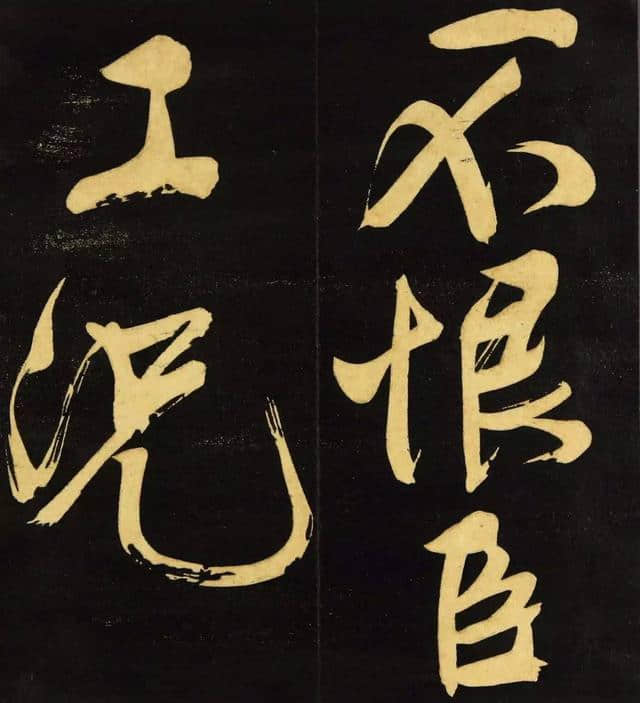 不恨臣
工况